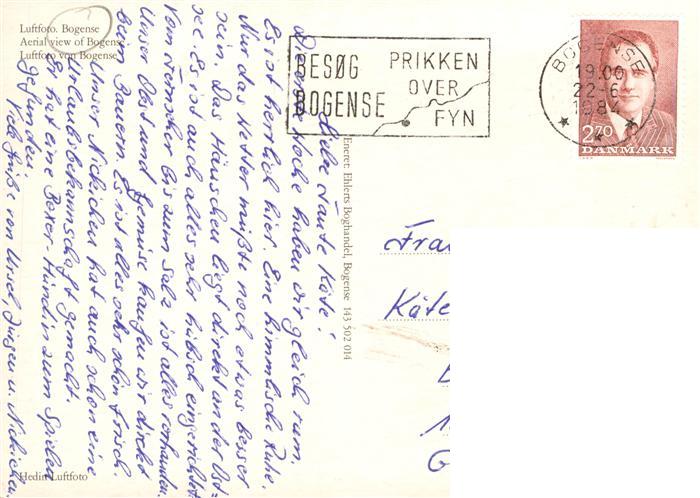 Luftfoto. Bogense
Aerial view of Bogense
Luftfoto von Bogense
BESØG
BOGENSE
PRIKKEN
OVER
FYN
BOGENSE
19.00
22-6
1984
2.70
DANMARK
Liebe Tante Käte!
Diese Woche haben wir gleich rum.
Es ist herrlich hier. Eine himmlische Ruhe.
Nur das Wetter müßte noch etwas besser
sein. Das Häuschen liegt direkt an der Ost-
see. Es ist auch alles sehr hübsch eingerichtet
vom Fernseher bis zum Salz ist alles vorhanden.
Unser Obst und Gemüse kaufen wir direkt
beim Bauern. Es ist alles sehr schön frisch.
Unser Nickichen hat auch schon eine
Urlaubsbekanntschaft gemacht.
Er hat eine Boxer-Hündin zum Spielen
gefunden.
Viele Grüße von Ursel, Jürgen u. Nickichen
Eneret: Ehlerts Boghandel, Bogense 143 502 014
Fra
Käte
Hedin Luftfoto